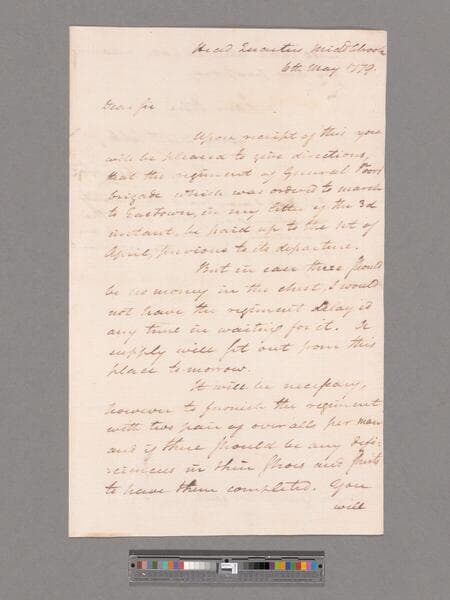 Head Quarters Middlbrook
6th May 1779.
Dear Sir
Upon receipt of this you
will be pleased to give directions,
that the regiment of General Poors
brigade which was ordered to march
to Eastown, in my letter of the 3d
instant, be paid up to the 1st of
April, previous to its departure.
But in case there should
be no money in the chest, I would
not have the regiment delay'd
any time in waiting for it. A
supply will set out from this
place to morrow.
It will be necessary,
however to furnish the regiment
with two pair of over alls per man
and if there should be any defi-
ciencies in their shoes and shirts
to have them completed. You
will